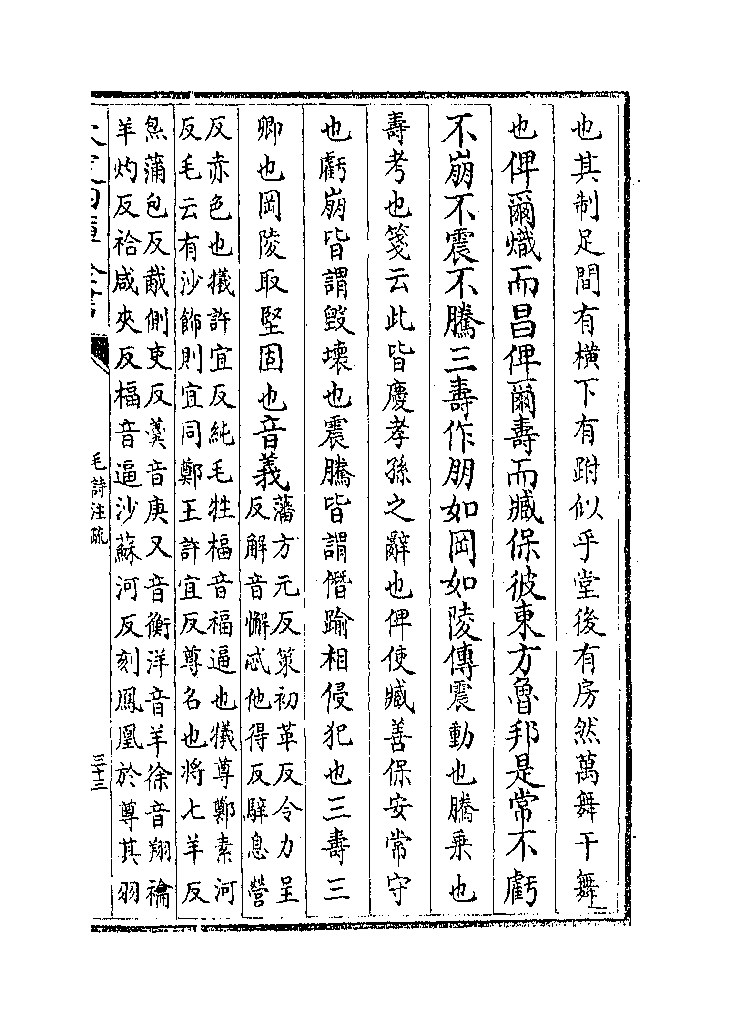 也其制足間有橫下有跗似乎堂後有房然萬舞干舞
也俾爾熾而昌俾爾壽而臧保彼東方魯邦是常不虧
不崩不震不騰三壽作朋如岡如陵傳震動也騰乗也
壽考也箋云此皆慶孝孫之辭也俾使臧善保安常守
也虧崩皆謂毀壞也震騰皆謂僭踰相侵犯也三壽三
卿也岡陵取堅固也音義
藩方元反筞初革反令力呈
反解音懈忒他得反騂息營
反赤色也犧許宜反純毛牲楅音福逼也犧尊鄭素河
反毛云有沙飾則宜同鄭王許宜反尊名也將七羊反
炰蒲包反胾側吏反羮音庚又音衡洋音羊徐音翔禴
羊灼反祫咸夾反楅音逼沙蘇河反刻鳳凰於尊其羽
毛詩注疏
三十三